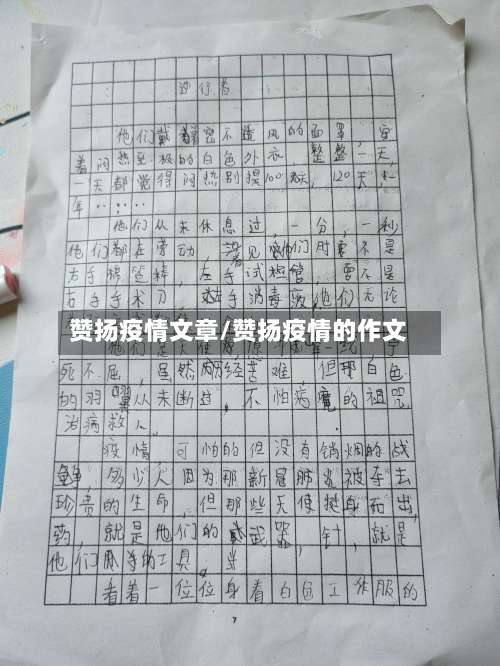 逆行者
他们戴着密不透风的面罩,穿
着闷热至极的白色外衣,整整一天,
一天都觉得闷热别提100天,120天,1
年……
他们从未休息过,一分,一秒
他们都在劳动,看见他们时要不是
右手棉签精,左手试检管,要不是
右手手术刀,左手消毒液,他们无论
赞扬疫情文章/赞扬疫情的作文
死不屈,虽然历经苦难,但那白色
的羽翼从未断过,不怕病魔的祖咒,
治病救人。
疫情,可怕的但没有销烟的战
争,多少人因为那新冠肺炎被夺去
珍贵的生命,但那些天使挺身而出,
药,就是他们的武器,针,就是
他们的工具,
看着一位位身着白色工作服的
7